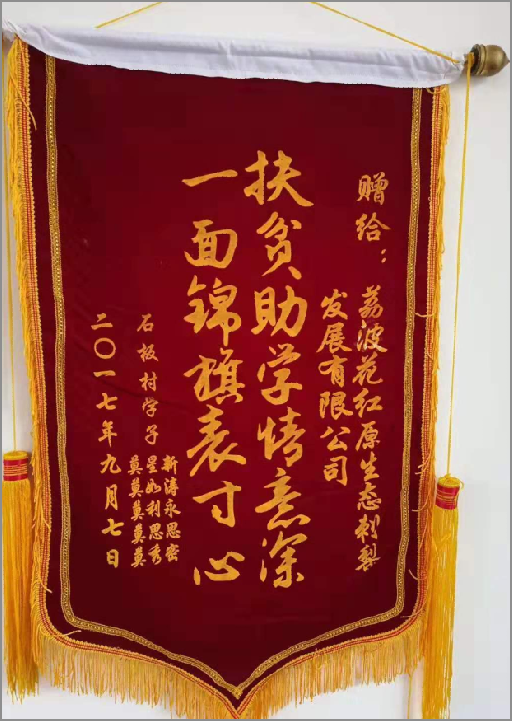 赠给：
荔波花红原生态刺梨
发展有限公司
扶贫助学情意深
一面锦旗表寸心
石板村学子
莫星新
莫如涛
莫利永
莫思恩
莫秀密
二〇一七年九月七日